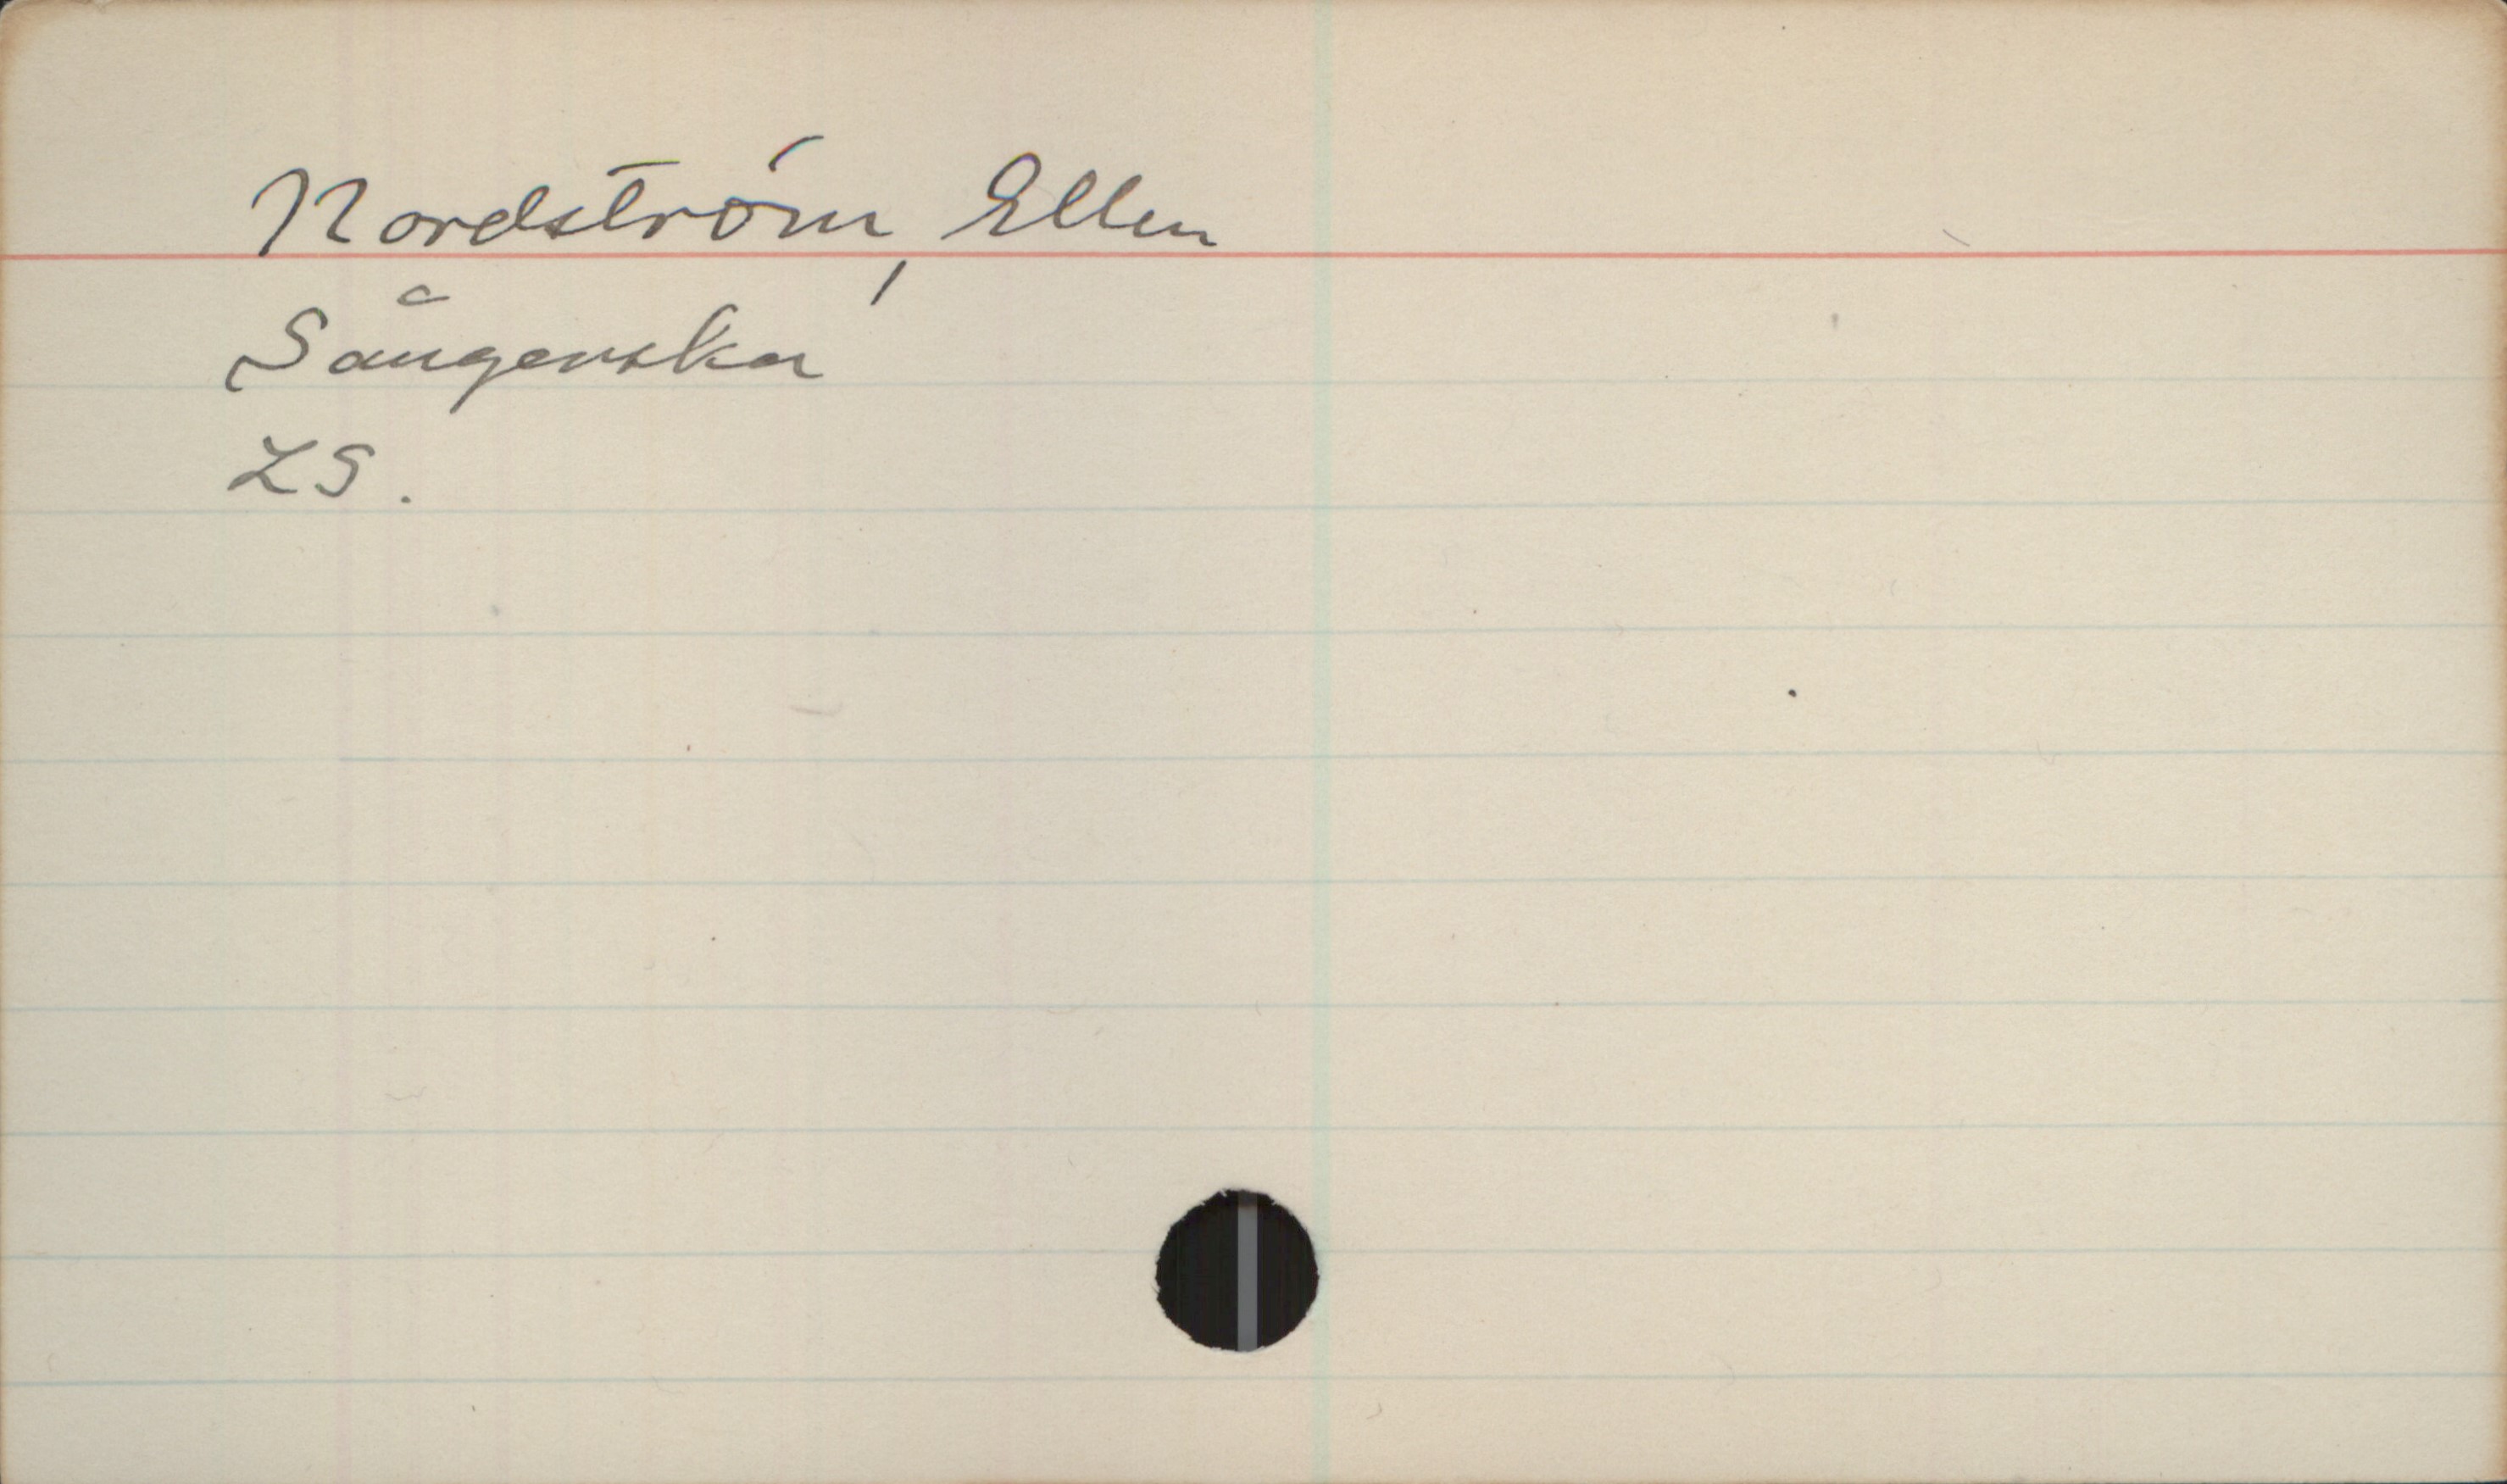 Nordström, Ellen
Sångerska
ZS.